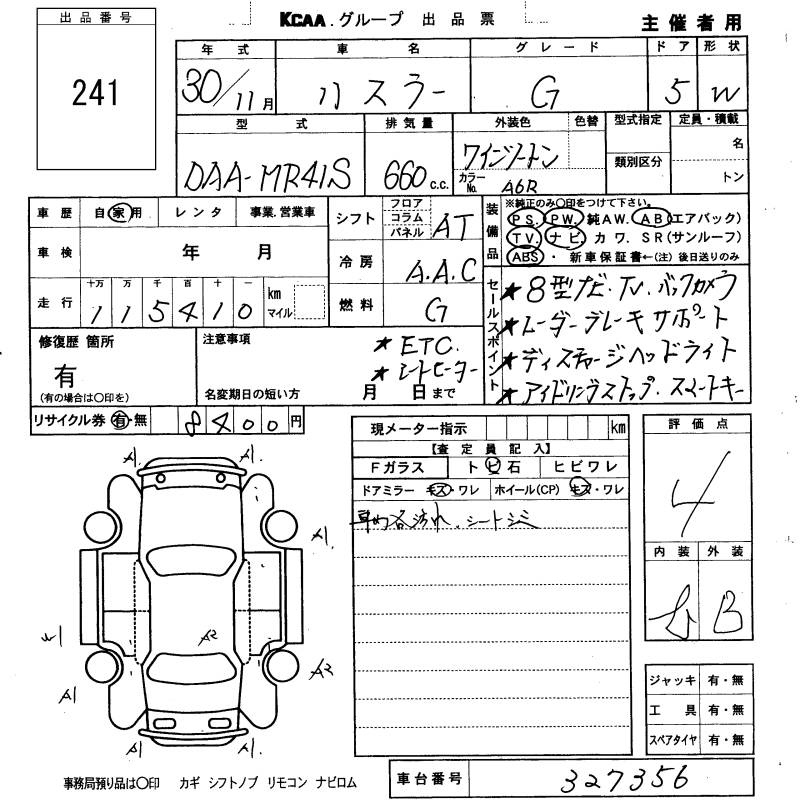 出品番号 KCAA.グループ 出品票 主催者用
241
年式 車名 グレード ドア 形状
30/11月 ハスラー G 5 W
型式 排気量 外装色 色替 型式指定 定員・積載
DAA-MR41S 660c.c. ワインツートン 名
類別区分
カラーNo. A6R トン
車歴 自家用 レンタ 事業.営業車
シフト フロア コラム パネル AT
車検 年 月
冷房 A.A.C
走行 十万 万 千 百 十 一
1 1 5 4 1 0 km マイル
燃料 G
装備品 ※純正のみ〇印をつけて下さい。
PS. PW. 純AW. AB(エアバック)
TV. ナビ. カワ. SR(サンルーフ)
ABS・ 新車保証書←(注)後日送りのみ
セールスポイント
★8型ナビ・TV.バックカメラ
★レーダーブレーキサポート
★ディスチャージヘッドライト
★アイドリングストップ.スマートキー
修復歴 箇所
有
(有の場合は〇印を)
注意事項
★ETC.
★シートヒーター
名変期日の短い方 月 日まで
リサイクル券 有・無 8400円
現メーター指示 km
【査定員記入】
Fガラス トビ石 ヒビワレ
ドアミラー キズ・ワレ ホイール(CP) キズ・ワレ
車内各汚れ.シートシミ
評価点
4
内装 外装
B
A1 A1
A1
A2
A1 A2
A1 A1
ジャッキ 有・無
工具 有・無
スペアタイヤ 有・無
事務局預り品は〇印 カギ シフトノブ リモコン ナビロム
車台番号 327356